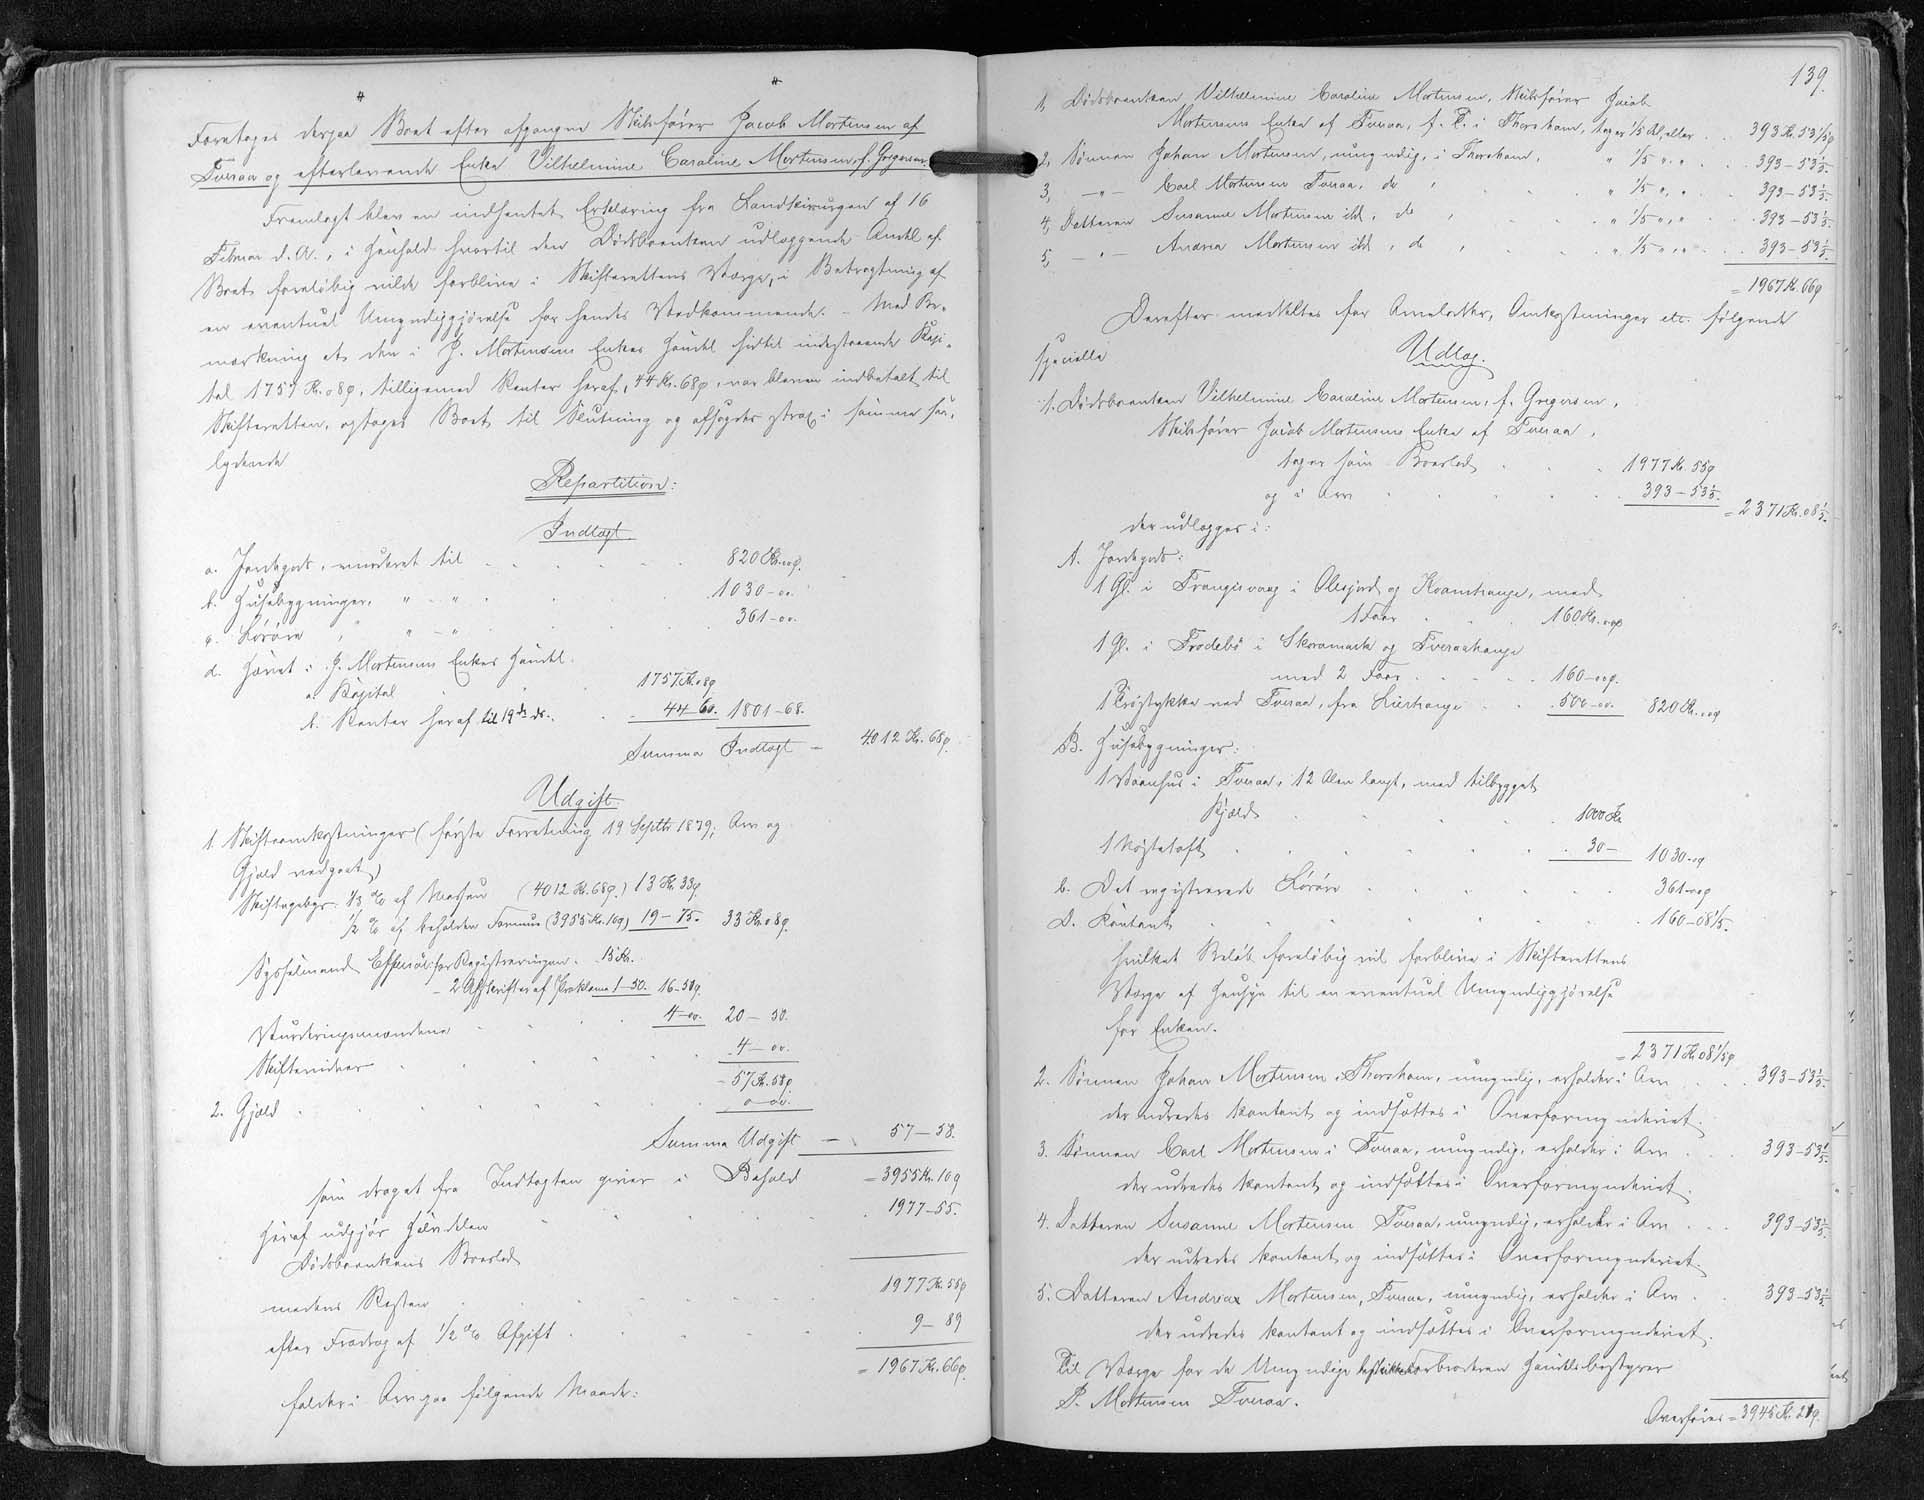 Foretoges derpaa Boet efter afgangne Skibsfører Jacob Mortensen af
Tveraa og efterlevende Enke Vilhelmine Caroline Mortensen, f. Gregersen.
Fremlagt blev en indhentet Erklæring fra Landkirurgen af 16
Februar d. A., i Henhold hvortil den Dødsboenken udlæggende Andel af
Boet foreløbig vilde forblive i Skifterettens Værge, i Betragtning af
en eventuel Umyndiggjørelse for hendes Vedkommende. – Med Be-
mærkning at den i J. Mortensens Enkes Handel hidtil indestaaende Kapi-
tal 1757 Kr. 08ø, tilligemed Renter heraf, 44 Kr. 60ø, var bleven indbetalt til
Skifteretten, optoges Boet til Slutning og afsagdes strax i samme saa-
lydende
Repartition:
Indtægt.
a. Jordegods, vurderet til 820 Kr. 00ø.
b. Husebygninger, " – " 1030 – 00.
c. Løsøre " " – " 361 – 00.
d. Hævet i J. Mortensens Enkes Handel
a. Kapital 1757 Kr. 08ø
b. Renter heraf til 19 ds. 44 – 60. 1801 – 68.
Summa Indtægt – 4012 Kr. 68ø.
Udgift
1. Skifteomkostninger (første Forretning 19 Septbr 1879; Arv og
Gjæld vedgaaet)
Skiftegebyr: 1/3 % af Massen (4012 Kr. 68ø.) 13 Kr. 33ø.
1/2 % af beholden Formue (3955 Kr. 10ø) 19 – 75. 33 Kr. 08ø.
Sysselmand Effersøe for Registreringen 15 Kr.
– 2 Afskrifter af Proklama 1 – 50. 16 – 50ø.
Vurderingsmændene 4 – 00. 20 – 50.
Skifteridner 4 – 00.
= 57 Kr. 58ø.
2. Gjæld 0 – 00.
Summa Udgift – 57 – 58.
som draget fra Indtægten giver i Behold = 3955 Kr. 10ø
Heraf udgjør Halvdelen
Dødsboenkens Boeslod 1977 – 55.
medens Resten 1977 Kr. 55ø
efter Fradrag af 1/2 % Afgift 9 – 89
= 1967 Kr. 66ø.
falder i Arv paa følgende Maade:
139.
1, Dødsboenken Vilhelmine Caroline Mortensen, Skibsfører Jacob
Mortensens Enke af Tveraa, f. T. i Thorshavn, tager 1/5 Del, eller 393 Kr. 53 1/5ø
2, Sønnen Johan Mortensen, umyndig, i Thorshavn, " 1/5 " " 393 – 53 1/5.
3, – " – Carl Mortensen Tveraa, do " 1/5 " " 393 – 53 1/5.
4, Datteren Susanne Mortensen ibd, do " 1/5 " " 393 – 53 1/5.
5, – " – Andrea Mortensen ibd, do " 1/5 " " 393 – 53 1/5.
= 1967 Kr. 66ø
Derefter meddeltes for Arvelodder, Omkostninger etc. følgende
specielle
Udlæg.
1. Dødsboenken Vilhelmine Caroline Mortensen, f. Gregersen,
Skibsfører Jacob Mortensens Enke af Tveraa,
tager som Boeslod 1977 Kr. 55ø
og i Arv 393 – 53 1/5. = 2371 Kr. 08 1/5.
der udlægges i:
A. Jordegods:
1 Gl. i Trangisvaag i Olesjord og Kvamhauge, med
1 Faar 160 Kr. 00ø
1 Gl. i Frodebø i Skoramark og Tveraahauge
med 2 Faar 160 – 00ø.
1 Trøstykke ved Tveraa, fra 500 – 00. 820 Kr. 00ø
B. Husebygninger:
1 Vaanhus i Tveraa, 12 Alen langt, med tilbygget
Kjæld 1000 Kr
1 Nøstetoft 30 – 1030 – 00
C. Det registrerede Løsøre 361 – 00ø
D. Kontant 160 – 08 1/5.
hvilket Beløb foreløbig vil forblive i Skifterettens
Værge af Hensyn til en eventuel Umyndiggjørelse
for Enken.
= 2371 Kr 08 1/5ø
2. Sønnen Johan Mortensen, i Thorshavn, umyndig, erholder i Arv 393 – 53 1/5.
der udredes kontant og indsættes i Overformynderiet.
3. Sønnen Carl Mortensen i Tveraa, umyndig, erholder i Arv 393 – 53 1/5.
der udredes kontant og indsættes i Overformynderiet.
4. Datteren Susanne Mortensen Tveraa, umyndig, erholder i Arv 393 – 53 1/5.
der udredes kontant og indsættes i Overformynderiet.
5. Datteren Andrea Mortensen, Tveraa, umyndig, erholder i Arv 393 – 53 1/5.
der udredes kontant og indsættes i Overformynderiet.
Til Værge for de Umyndige beskikkedes Farbroderen Handelsbestyrer
P. Mortensen Tveraa.
Overføres = 3945 Kr. 21ø.